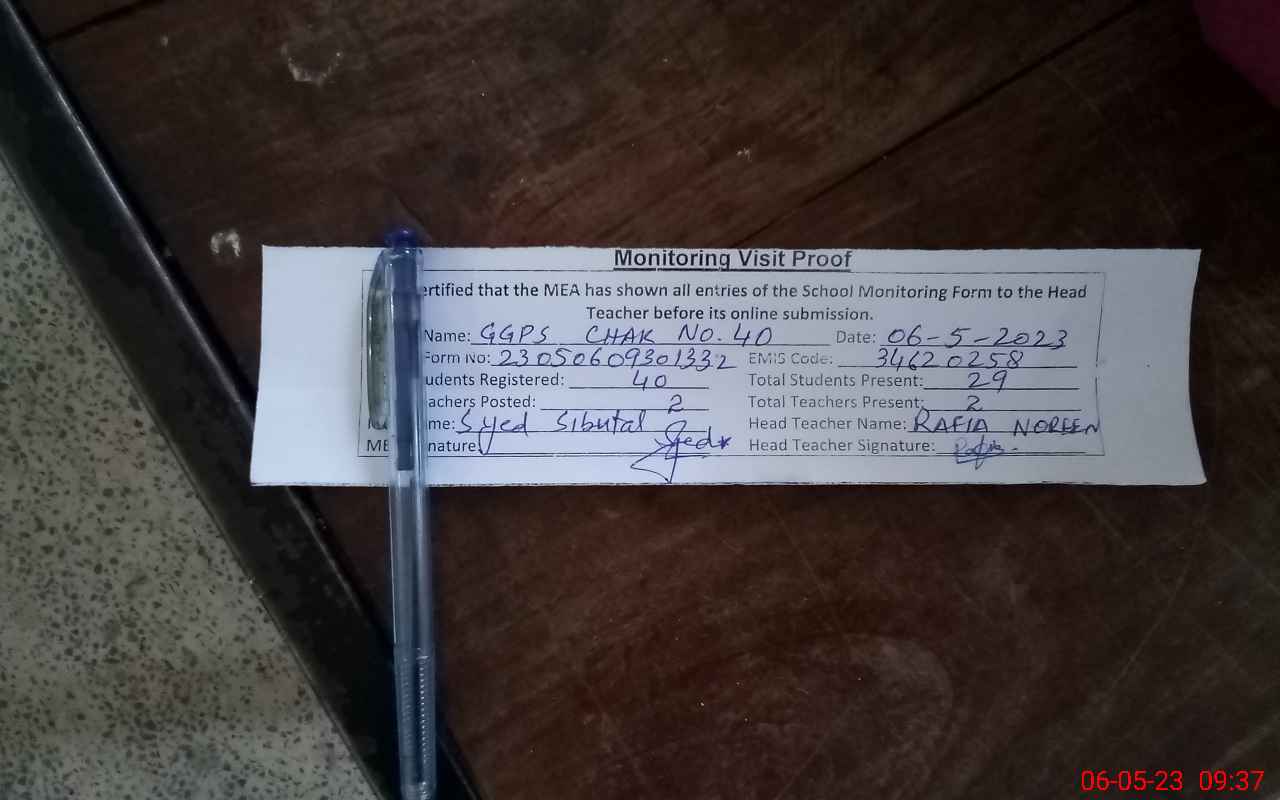 Monitoring Visit Proof
ertified that the MEA has shown all entries of the School Monitoring Form to the Head
Teacher before its online submission.
Name: GGPS CHAK NO. 40 Date: 06-5-2023
Form No: 23050609301332 EMIS Code: 34620258
udents Registered: 40 Total Students Present: 29
achers Posted: 2 Total Teachers Present: 2
me: Syed Sibutal Head Teacher Name: RAFIA NOREEN
ME nature: Syed Head Teacher Signature: Rafia
06-05-23 09:37